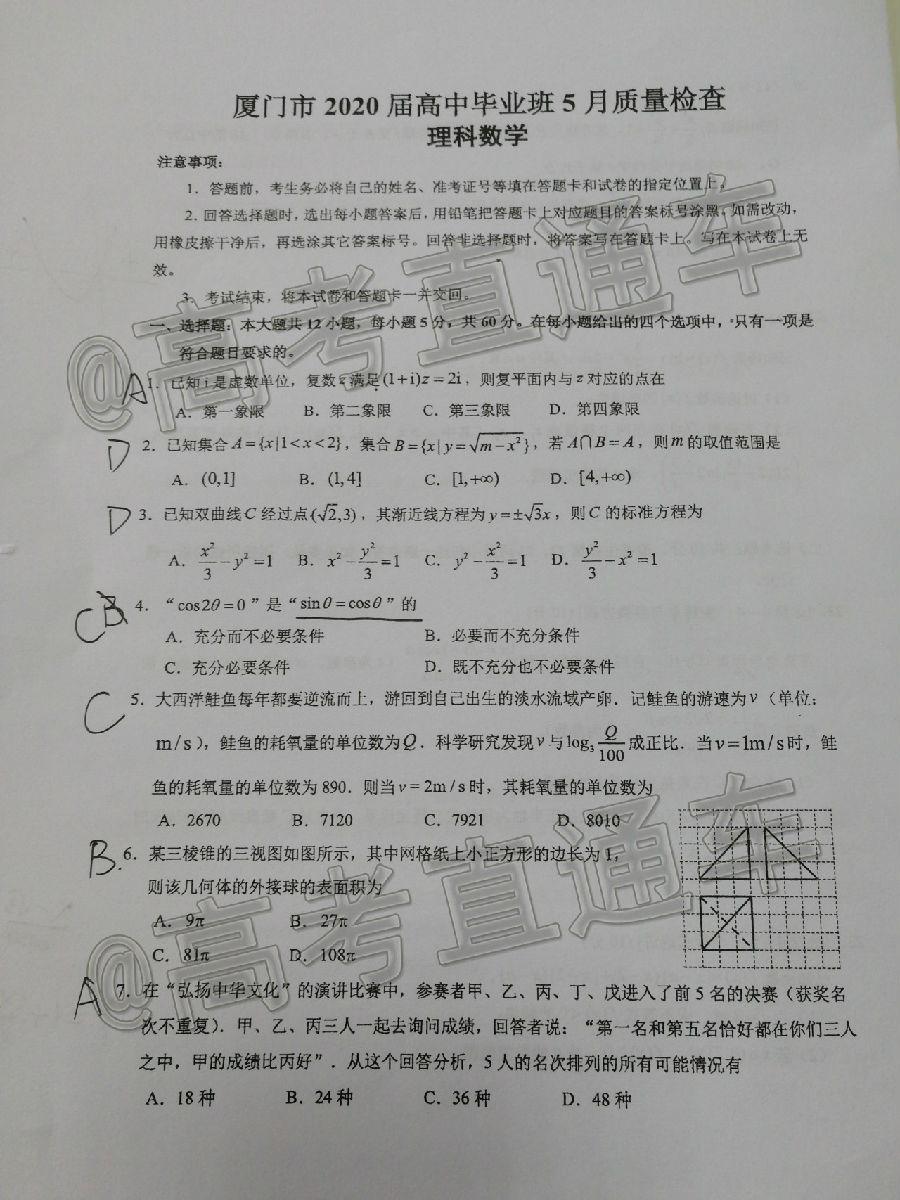 厦门市 2020 届高中毕业班 5 月质量检查
理科数学
注意事项：
1．答题前，考生务必将自己的姓名、准考证号等填在答题卡和试卷的指定位置上。
2．回答选择题时，选出每小题答案后，用铅笔把答题卡上对应题目的答案标号涂黑。如需改动，
用橡皮擦干净后，再选涂其它答案标号。回答非选择题时，将答案写在答题卡上。写在本试卷上无
效。
3．考试结束，将本试卷和答题卡一并交回。
@高考直通车
一、选择题：本大题共 12 小题，每小题 5 分，共 60 分。在每小题给出的四个选项中，只有一项是
符合题目要求的。
A 1．已知 i 是虚数单位，复数 z 满足(1+i)z=2i，则复平面内与 z 对应的点在
A．第一象限 B．第二象限 C．第三象限 D．第四象限
D 2．已知集合 A={x|1<x<2}，集合 B={x|y=√(m−x²)}，若 A∩B=A，则 m 的取值范围是
A．(0,1] B．(1,4] C．[1,+∞) D．[4,+∞)
D 3．已知双曲线 C 经过点(√2,3)，其渐近线方程为 y=±√3x，则 C 的标准方程为
A．x²/3−y²=1 B．x²−y²/3=1 C．y²−x²/3=1 D．y²/3−x²=1
CB 4．“cos2θ=0”是“sinθ=cosθ”的
A．充分而不必要条件 B．必要而不充分条件
C．充分必要条件 D．既不充分也不必要条件
C 5．大西洋鲑鱼每年都要逆流而上，游回到自己出生的淡水流域产卵．记鲑鱼的游速为 v（单位：
m/s），鲑鱼的耗氧量的单位数为 Q．科学研究发现 v 与 log₃ Q/100 成正比．当 v=1m/s 时，鲑
鱼的耗氧量的单位数为 890．则当 v=2m/s 时，其耗氧量的单位数为
A．2670 B．7120 C．7921 D．8010
B. 6．某三棱锥的三视图如图所示，其中网格纸上小正方形的边长为 1，
则该几何体的外接球的表面积为
A．9π B．27π
C．81π D．108π
@高考直通车
A 7．在“弘扬中华文化”的演讲比赛中，参赛者甲、乙、丙、丁、戊进入了前 5 名的决赛（获奖名
次不重复）．甲、乙、丙三人一起去询问成绩，回答者说：“第一名和第五名恰好都在你们三人
之中，甲的成绩比丙好”．从这个回答分析，5 人的名次排列的所有可能情况有
A．18 种 B．24 种 C．36 种 D．48 种